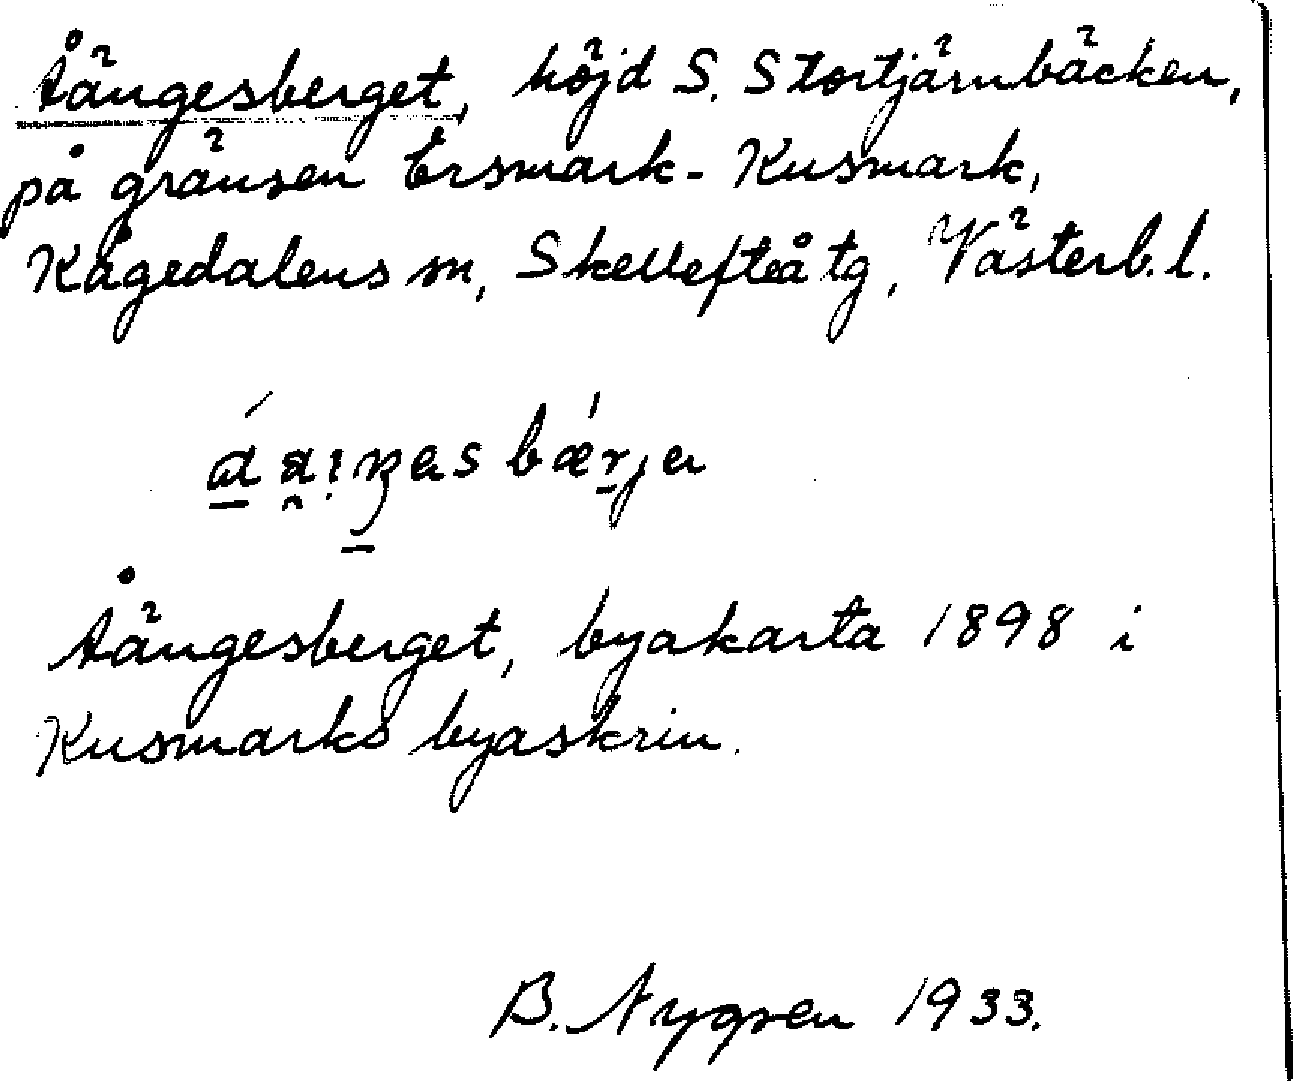 Åängesberget, höjd S. Stortjärnbäcken,
på gränsen Ersmark-Kusmark,
Kågedalens sn, Skellefteå tg, Västerb. l.
Åängesberget, byakarta 1898 i
Kusmarks byaskrin.
B. Nygren 1933.